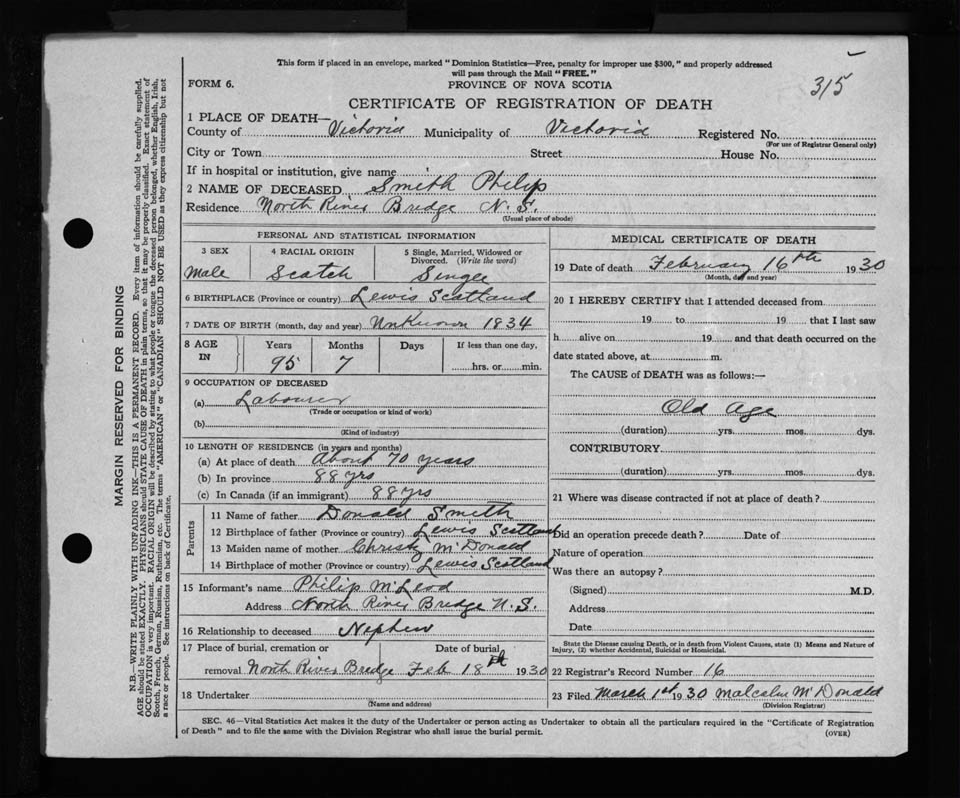 This form if placed in an envelope, marked "Dominion Statistics—Free, penalty for improper use $300," and properly addressed
will pass through the Mail "FREE."
315
FORM 6.
PROVINCE OF NOVA SCOTIA
CERTIFICATE OF REGISTRATION OF DEATH
1 PLACE OF DEATH—
County of Victoria Municipality of Victoria Registered No.
(For use of Registrar General only)
City or Town Street House No.
If in hospital or institution, give name
2 NAME OF DECEASED Smith Philip
Residence North River Bridge N. S.
(Usual place of abode)
PERSONAL AND STATISTICAL INFORMATION
3 SEX
Male
4 RACIAL ORIGIN
Scotch
5 Single, Married, Widowed or
Divorced. (Write the word)
Single
6 BIRTHPLACE (Province or country) Lewis Scotland
7 DATE OF BIRTH (month, day and year) Unknown 1834
8 AGE
IN
Years Months Days If less than one day,
95 7 hrs. or min.
9 OCCUPATION OF DECEASED
(a) Labourer
(Trade or occupation or kind of work)
(b)
(Kind of industry)
10 LENGTH OF RESIDENCE (in years and months)
(a) At place of death About 70 years
(b) In province 88 yrs
(c) In Canada (if an immigrant) 88 yrs
Parents
11 Name of father Donald Smith
12 Birthplace of father (Province or country) Lewis Scotland
13 Maiden name of mother Christy McDonald
14 Birthplace of mother (Province or country) Lewis Scotland
15 Informant's name Philip McLeod
Address North River Bridge N. S.
16 Relationship to deceased Nephew
17 Place of burial, cremation or Date of burial
removal North River Bridge Feb 18th 1930
18 Undertaker
(Name and address)
MEDICAL CERTIFICATE OF DEATH
19 Date of death February 16th 1930
(Month, day and year)
20 I HEREBY CERTIFY that I attended deceased from
19 to 19 that I last saw
h alive on 19 and that death occurred on the
date stated above, at m.
The CAUSE of DEATH was as follows:—
Old Age
(duration) yrs. mos. dys.
CONTRIBUTORY
(duration) yrs. mos. dys.
21 Where was disease contracted if not at place of death?
Did an operation precede death? Date of
Nature of operation
Was there an autopsy?
(Signed) M.D.
Address
Date
State the Disease causing Death, or in death from Violent Causes, state (1) Means and Nature of
Injury, (2) whether Accidental, Suicidal or Homicidal.
22 Registrar's Record Number 16
23 Filed March 1st 1930 Malcolm McDonald
(Division Registrar)
SEC. 46—Vital Statistics Act makes it the duty of the Undertaker or person acting as Undertaker to obtain all the particulars required in the "Certificate of Registration
of Death" and to file the same with the Division Registrar who shall issue the burial permit.
(OVER)
MARGIN RESERVED FOR BINDING
N.B.—WRITE PLAINLY WITH UNFADING INK—THIS IS A PERMANENT RECORD. Every item of information should be carefully supplied.
AGE should be stated EXACTLY. PHYSICIANS should STATE CAUSE OF DEATH in plain terms, so that it may be properly classified. Exact statement of
OCCUPATION is very important. RACIAL ORIGIN will be described by stating to what people or tongue the deceased person belonged, whether English, Irish,
Scotch, French, German, Russian, Ruthenian, etc. The terms "AMERICAN" or "CANADIAN" SHOULD NOT BE USED as they express citizenship but not
a race or people. See instructions on back of Certificate.